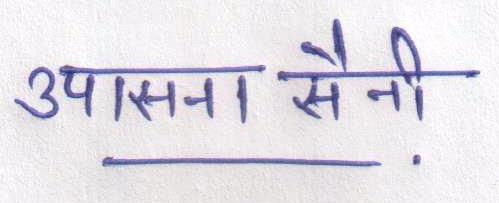 उपासना सैनी